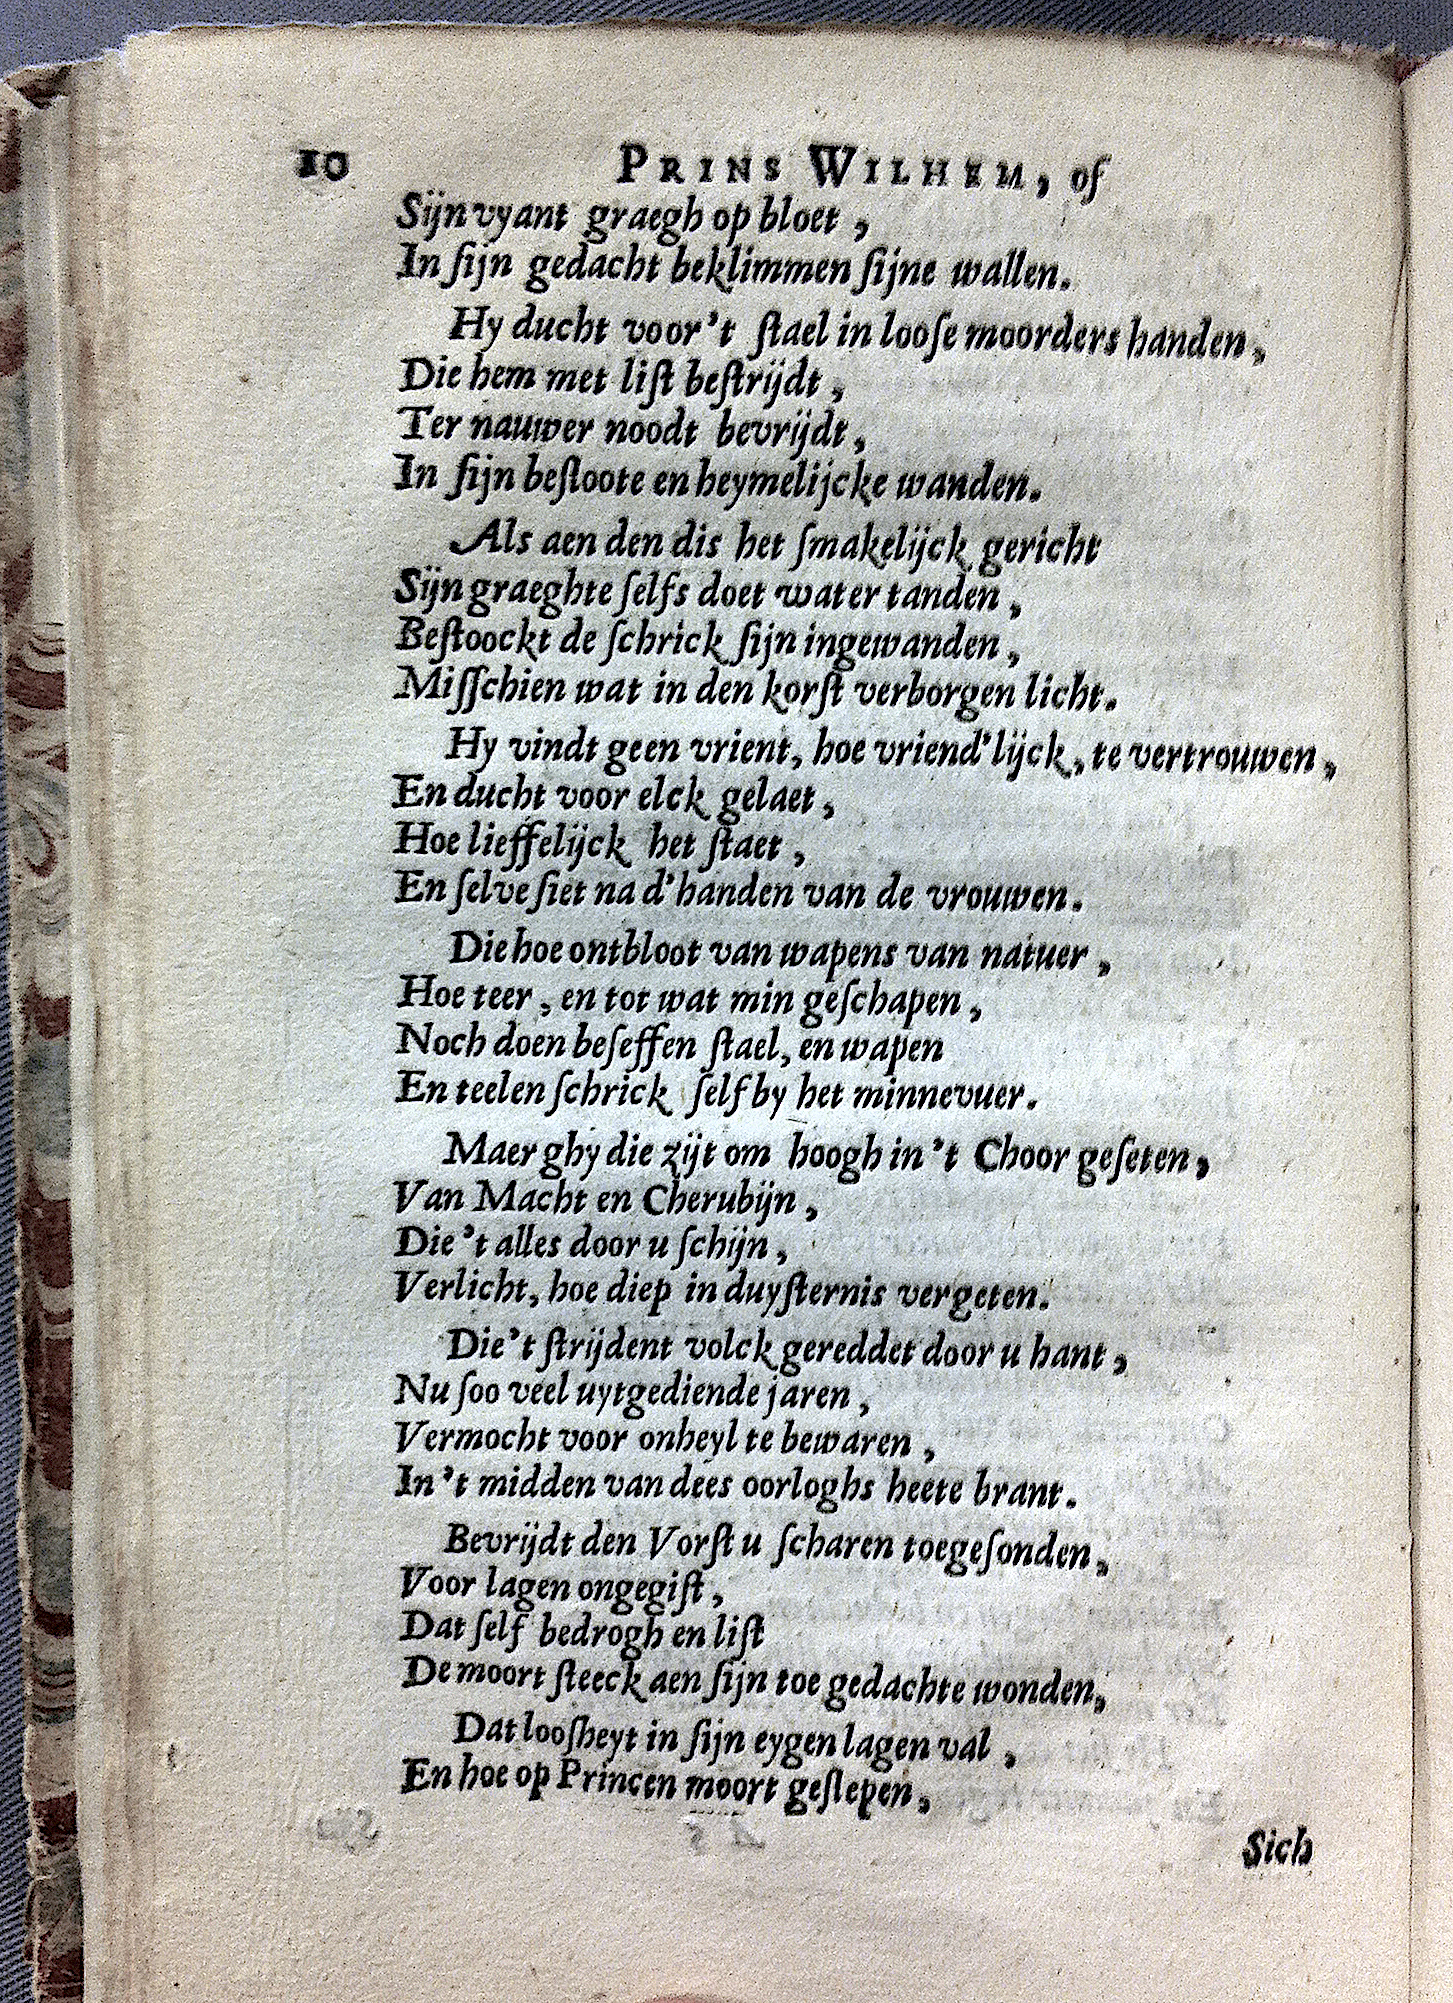 10 PRINS WILHEM, of
Sijn vyant graegh op bloet,
In ſijn gedacht beklimmen ſijne wallen.
Hy ducht voor 't ſtael in looſe moorders handen,
Die hem met liſt beſtrijdt,
Ter nauwer noodt bevrijdt,
In ſijn beſloote en heymelijcke wanden.
Als aen den dis het ſmakelijck gericht
Sijn graeghte ſelfs doet watertanden,
Beſtoockt de ſchrick ſijn ingewanden,
Miſſchien wat in den korſt verborgen licht.
Hy vindt geen vrient, hoe vriend'lijck, te vertrouwen,
En ducht voor elck gelaet,
Hoe lieffelijck het ſtaet,
En ſelve ſiet na d'handen van de vrouwen.
Die hoe ontbloot van wapens van natuer,
Hoe teer, en tot wat min geſchapen,
Noch doen beſeffen ſtael, en wapen
En teelen ſchrick ſelf by het minnevuer.
Maer ghy die zijt om hoogh in 't Choor geſeten,
Van Macht en Cherubijn,
Die 't alles door u ſchijn,
Verlicht, hoe diep in duyſternis vergeten.
Die 't ſtrijdent volck gereddet door u hant,
Nu ſoo veel uytgediende jaren,
Vermocht voor onheyl te bewaren,
In 't midden van dees oorloghs heete brant.
Bevrijdt den Vorſt u ſcharen toegeſonden,
Voor lagen ongegiſt,
Dat ſelf bedrogh en liſt
De moort ſteeck aen ſijn toe gedachte wonden,
Dat looſheyt in ſijn eygen lagen val,
En hoe op Princen moort geſlepen,
Sich